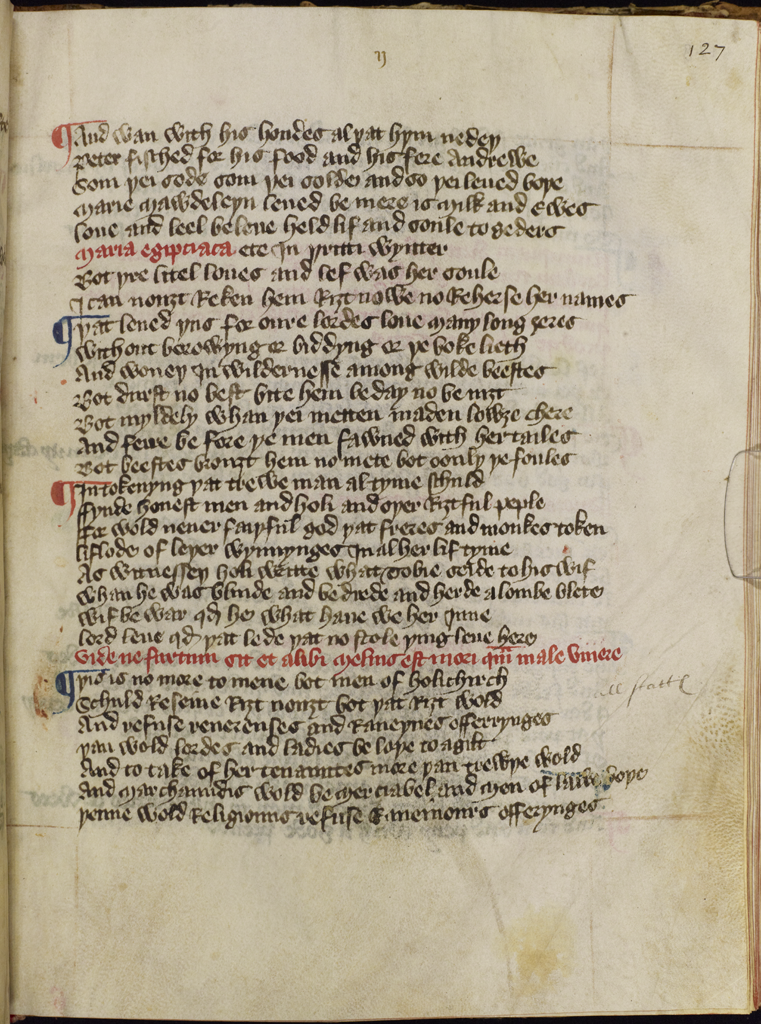 127
¶ And wan with his hondes al þat hym nedeþ
Peter fisched for his food and his fere Andrewe
Som þei sode som þei solden and so þei leued boþe
Marie Mawdeleyn leued be meres mylk and Ewes
Loue and leel beleue held lif and soule to geders
Maria egipciaca ete In þritti wynter
Bot þre litel loues and lef was her soule
I can nouȝt Reken hem Riȝt nowe no Reherse her names
¶ Þat leued þus for oure lordes loue many long ȝeres
Without borowyng or biddyng or þe boke lieth
And woneþ In wildernesse among wilde beestes
Bot durst no best bite hem be day no be niȝt
Bot myldely whan þei metten maden lowȝe chere
And feire be fore þe men fawned with her tailes
Bot beestes brouȝt hem no mete bot oonly þe foules
¶ In tokenyng þat trewe man al tyme schuld
ffynde honest men and holi and oþer Riȝtful peple
ffor wold neuer faiþful god þat freres and monkes token
liflode of leþer wynnynges In al her lif tyme
As witnesseþ holi writte what Tobie seide to his wif
Whan he was blinde and be drede and herde a lombe blete
Wif be war qd he what haue we her Inne
Lord leue qd þat lede þat no stole þing leue here
Vide ne furtum sit et alibi Melius est mori qm male viuere
¶ Þis is no more to mene bot men of holichirch
Schuld Reseiue Riȝt nouȝt bot þat Riȝt wold
And refuse reuerenses and Raueynes offerrynges
Þan wold lordes and ladies be loþe to agilt
And to take of her tenauntes more þan trewþe wold
And Marchaundis wold be merciabel and Men of lawe boþe
Þenne wold Religiouns refuse Rauenours offerynges